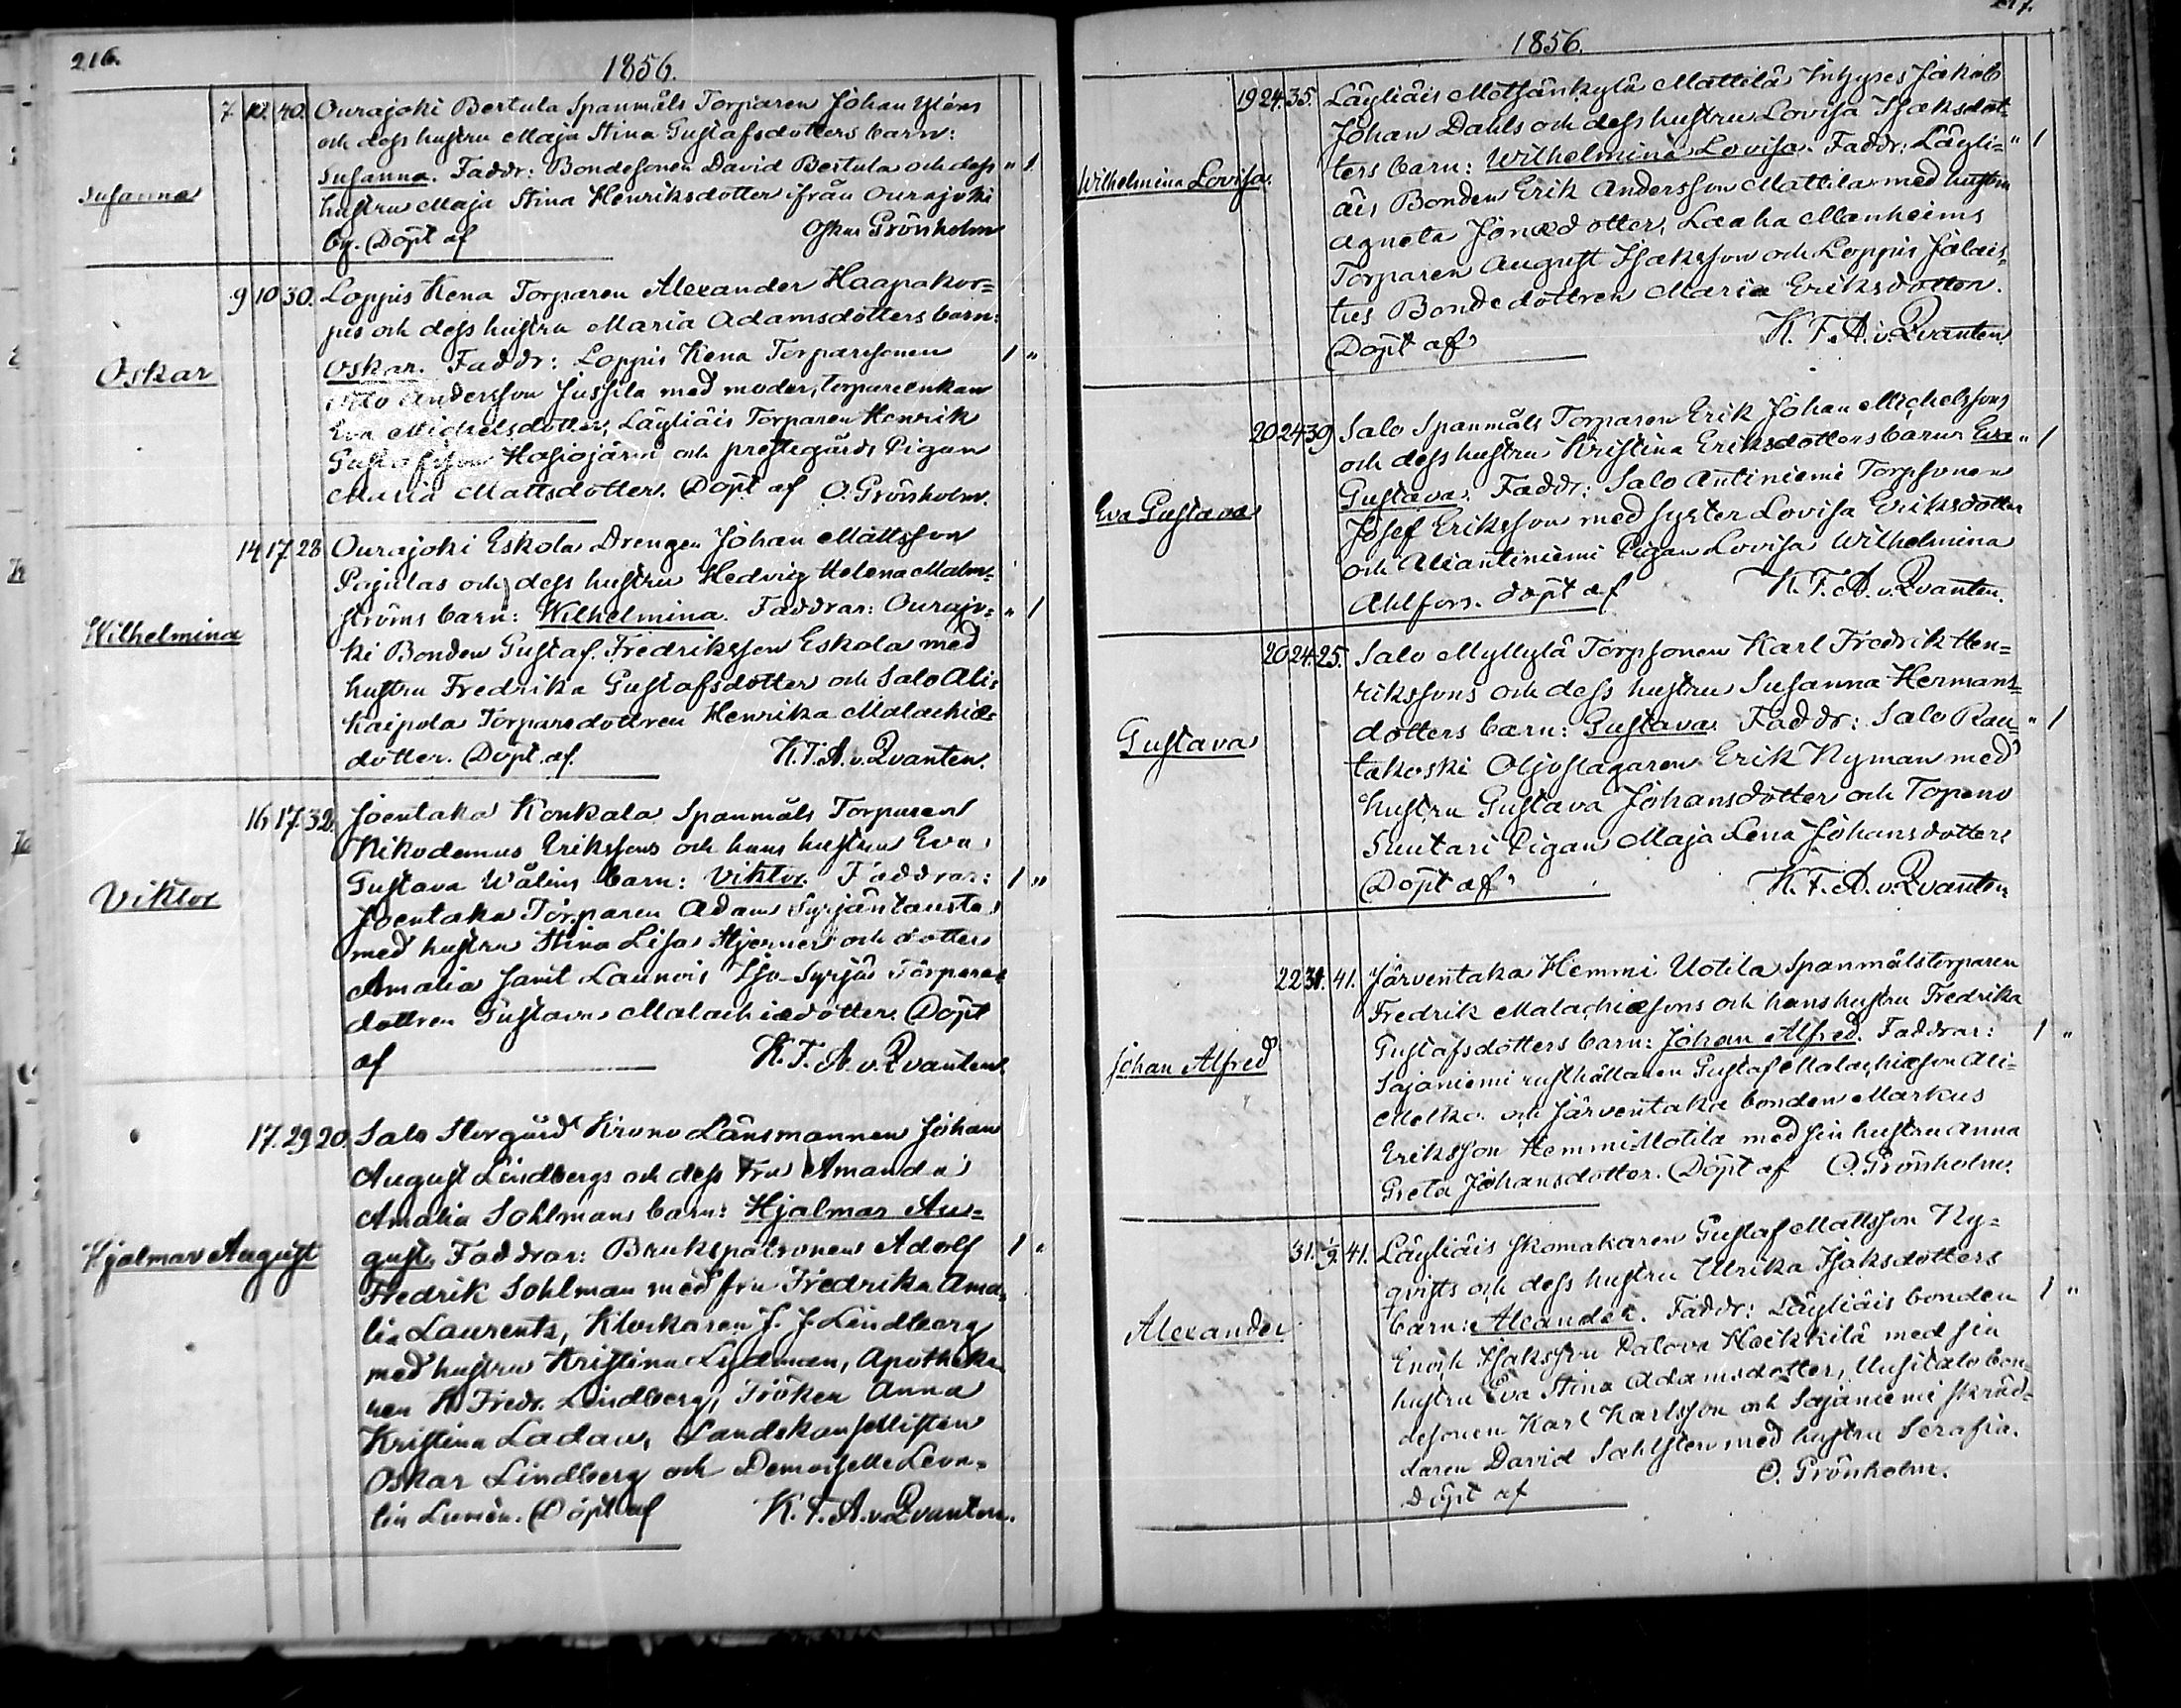 216.
1856.
7. 10. 40. Ourajoki Bertula Spanmåls Torparen Johan
och dess hustru Maja Stina Gustafsdotters barn:
Susanna Susanna. Faddr: Bondesonen David Bertula och dess " 1
hustru Maja Stina Henriksdotter ifrån Ourajoki
by. Döpt af Oskar Grönholm
9 10 30. Loppis Kena Torparen Alexander Haapakor=
pis och dess hustru Maria Adamsdotters barn:
Oskar Oskar. Faddr: Loppis Kena Torparesonen 1 "
Otto Andersson Jussila med moder, torpareenkan
Eva Michelsdotter, Läyliäis Torparen Henrik
Gustafsson Hasiojärvi och prestegårds Pigan
Maria Mattsdotter. Döpt af O. Grönholm.
14 17. 28 Ourajoki Eskola Drengen Johan Mattsson
Pajulas och dess hustru Hedvig Helena Malm=
Wilhelmina ströms barn: Wilhelmina. Faddrar: Ourajo= " 1
ki Bonden Gustaf Fredriksson Eskola med
hustru Fredrika Gustafsdotter och Salo Ali=
kaipola Torparedottren Henrika Malachiæ
dotter. Döpt af. K. F. A. v. Qvanten.
16 17. 32. Joentaka Konkala Spanmåls Torparen
Nikodemus Erikssons och hans hustru Eva
Viktor Gustava Wålins barn: Viktor. Faddrar: 1 "
Joentaka Torparen Adam Syrjäntausta
med hustru Stina Lisa Stjerner och dotter
Amalia samt Launois Iso-Syrjäs Torpare
dottren Gustava Malachiædotter. Döpt
af K. F. A. v. Qvanten
17. 29 20. Salo Storgård Krono Länsmannen Johan
August Lindbergs och dess Fru Amanda
Amalia Sohlmans barn: Hjalmar Au=
Hjalmar August gust. Faddrar: Brukspatronen Adolf 1 "
Fredrik Sohlman med fru Fredrika Ama=
lia Laurentz, Klockaren J. J. Lindberg
med hustru Kristina Lydman, Apotheka
ren K. Fredr. Lindberg, Fröken Anna
Kristina Ladau, Landskansellisten
Oskar Lindberg och Demoiselle Leon=
tin Lunén. Döpt af K. F. A. v. Qvanten.
217.
1856.
19 24. 35. Läyliäis Motsänkylä Mattilä Inhyses Jakob
Johan Dahls och dess hustru Lovisa Isaksdot=
Wilhelmina Lovisa. ters barn: Wilhelmina Lovisa. Faddr: Läyli= " 1
äis Bonden Erik Andersson Mattila med hustru
Agneta Jonædotter, Laaha Manheims
Torparen August Isaksson och Loppis Jälais=
tus Bondedottren Maria Eriksdotter.
Döpt af K. F. A. v. Qvanten
20 24 39 Salo Spanmåls Torparen Erik Johan Michelssons
och dess hustru Kristina Eriksdotters barn Eva " 1
Eva Gustava Gustava. Faddr: Salo Antiniemi Torpsonen
Josef Eriksson med syster Lovisa Eriksdotter
och Aliantiniemi Pigan Lovisa Wilhelmina
Ahlfors. Döpt af K. F. A. v. Qvanten.
20 24. 25. Salo Myllylä Torpsonen Karl Fredrik Hen=
rikssons och dess hustru Susanna Hermans=
Gustava dotters barn: Gustava. Faddr: Salo Rau= " 1
takoski Oljoslagaren Erik Nyman med
hustru Gustava Johansdotter och Topeno
Suutari Pigan Maja Lena Johansdotter.
Döpt af K. F. A. v. Qvanten
22 31. 41. Järventaka Hemmi Uotila Spanmålstorparen
Fredrik Malachiæsons och hans hustru Fredrika
Johan Alfred Gustafsdotters barn: Johan Alfred. Faddrar: 1 "
Sajaniemi rusthållaren Gustaf Malachiæson Ali=
Melko och Järventaka bonden Markus
Eriksson Hemmi Uotila med sin hustru Anna
Greta Johansdotter. Döpt af O. Grönholm.
31. 1/9. 41. Läyliäis Skomakaren Gustaf Mattsson Ny=
qvists och dess hustru Ulrika Isaksdotters
Alexander barn: Alexander. Faddr: Läyliäis bonden 1 "
Enoch Isaksson Patova Heikkilä med sin
hustru Eva Stina Adamsdotter, Uusitalo bon=
desonen Karl Karlsson och Sajaniemi skräd=
daren David Sahlsten med hustru Serafia.
Döpt af O. Grönholm.